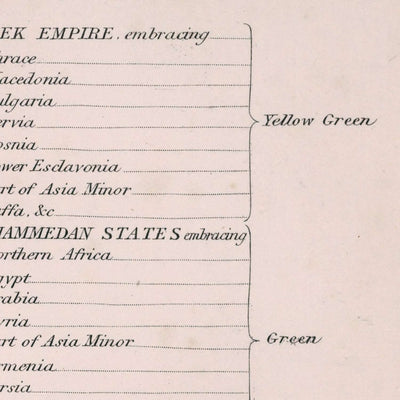 EK EMPIRE. embracing
hrace
acedonia
ulgaria
ervia
osnia
ower Esclavonia
rt of Asia Minor
affa, &c
Yellow Green
HAMMEDAN STATES embracing
orthern Africa
gypt
rabia
yria
rt of Asia Minor
rmenia
ersia
Green